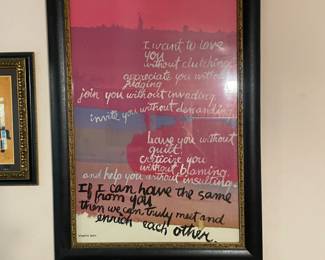 I want to love
you
without clutching,
appreciate you without
judging
join you without invading,
invite you without demanding,
leave you without
guilt,
criticize you
without blaming,
and help you without insulting.
If I can have the same
from you
then we can truly meet and
enrich each other.